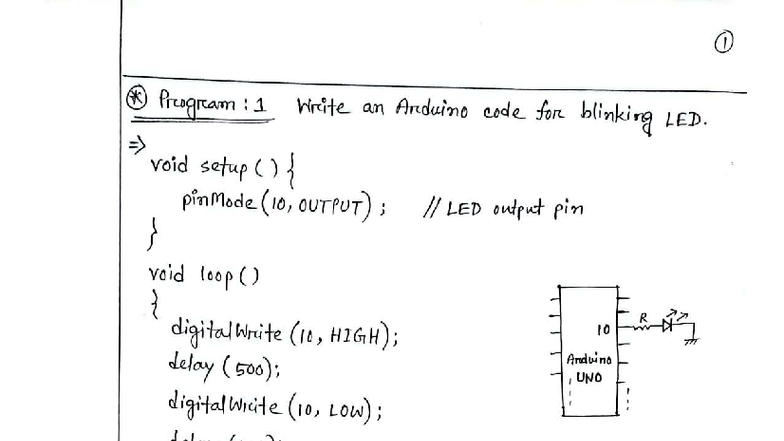 ①
⊛ Program : 1 Write an Arduino code for blinking LED.
⇒
void setup () {
pinMode (10, OUTPUT) ; // LED output pin
}
void loop ()
{
digitalWrite (10, HIGH);
delay (500);
digitalWrite (10, LOW);
R
10
Arduino
UNO